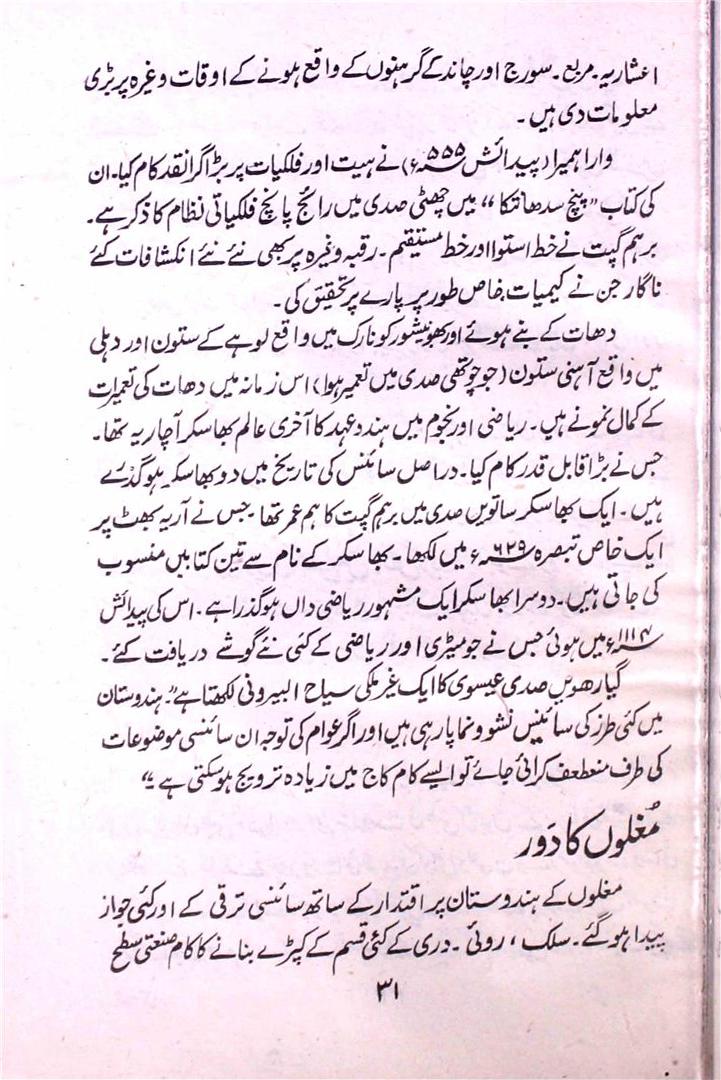 اعشاریہ۔ مربع۔ سورج اور چاند کے گرہنوں کے واقع ہونے کے اوقات وغیرہ پر بڑی
معلومات دی ہیں۔
وارا ہمیرا (پیدائش ۵۵۵ء) نے ہیت اور فلکیات پر بڑا گرانقدر کام کیا۔ ان
کی کتاب "پنچ سدھانتکا" میں چھٹی صدی میں رائج پانچ فلکیاتی نظام کا ذکر ہے۔
برہم گپت نے خط استوا اور خط مستقیم۔ رقبہ وغیرہ پر بھی نئے نئے انکشافات کئے
ناگارجن نے کیمیات خاص طور پر پارے پر تحقیق کی۔
دھات کے بنے ہوئے اور بھوبنیشور کونارک میں واقع لوہے کے ستون اور دہلی
میں واقع آہنی ستون (جو چوتھی صدی میں تعمیر ہوا) اس زمانہ میں دھات کی تعمیرات
کے کمال نمونے ہیں۔ ریاضی اور نجوم میں ہندو عہد کا آخری عالم بھاسکر آچاریہ تھا۔
جس نے بڑا قابل قدر کام کیا۔ دراصل سائنس کی تاریخ میں دو بھاسکر ہو گذرے
ہیں۔ ایک بھاسکر ساتویں صدی میں برہم گپت کا ہم عمر تھا۔ جس نے آریہ بھٹ پر
ایک خاص تبصرہ ۶۲۹ء میں لکھا۔ بھاسکر کے نام سے تین کتابیں منسوب
کی جاتی ہیں۔ دوسرا بھاسکر ایک مشہور ریاضی داں ہو گذرا ہے۔ اس کی پیدائش
۱۱۱۴ء میں ہوئی جس نے جومیٹری اور ریاضی کے کئی نئے گوشے دریافت کئے۔
گیارھویں صدی عیسوی کا ایک غیر ملکی سیاح البیرونی لکھتا ہے "ہندوستان
میں کئی طرز کی سائینسیں نشوونما پا رہی ہیں اور اگر عوام کی توجہ ان سائنسی موضوعات
کی طرف منعطف کرائی جائے تو ایسے کام کاج میں زیادہ ترویج ہو سکتی ہے۔"
مُغلوں کا دَور
مغلوں کے ہندوستان پر اقتدار کے ساتھ سائنسی ترقی کے اور کئی جواز
پیدا ہو گئے۔ سلک، روئی۔ دری کے کئی قسم کے کپڑے بنانے کا کام صنعتی سطح
۳۱